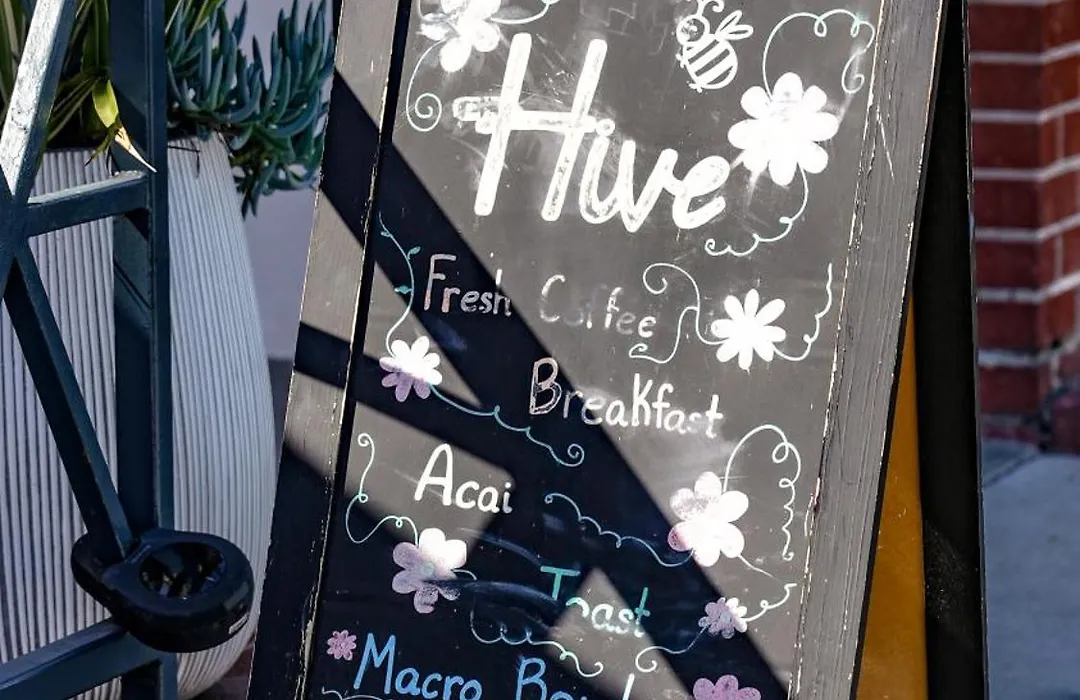 Hive
Fresh Coffee
Breakfast
Acai
Toast
Macro